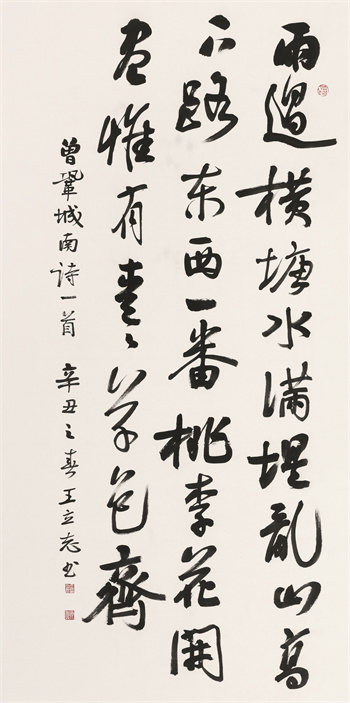 雨過横塘水滿堤亂山高
下路东西一番桃李花開
尽惟有青々草色齊
曾鞏城南诗一首 辛丑之春王立志书